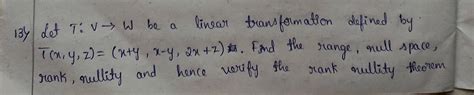 13) Let T: V → W be a linear transformation defined by
T(x, y, z) = (x+y, x-y, 2x+z). Find the range, null space,
rank, nullity and hence verify the rank nullity theorem